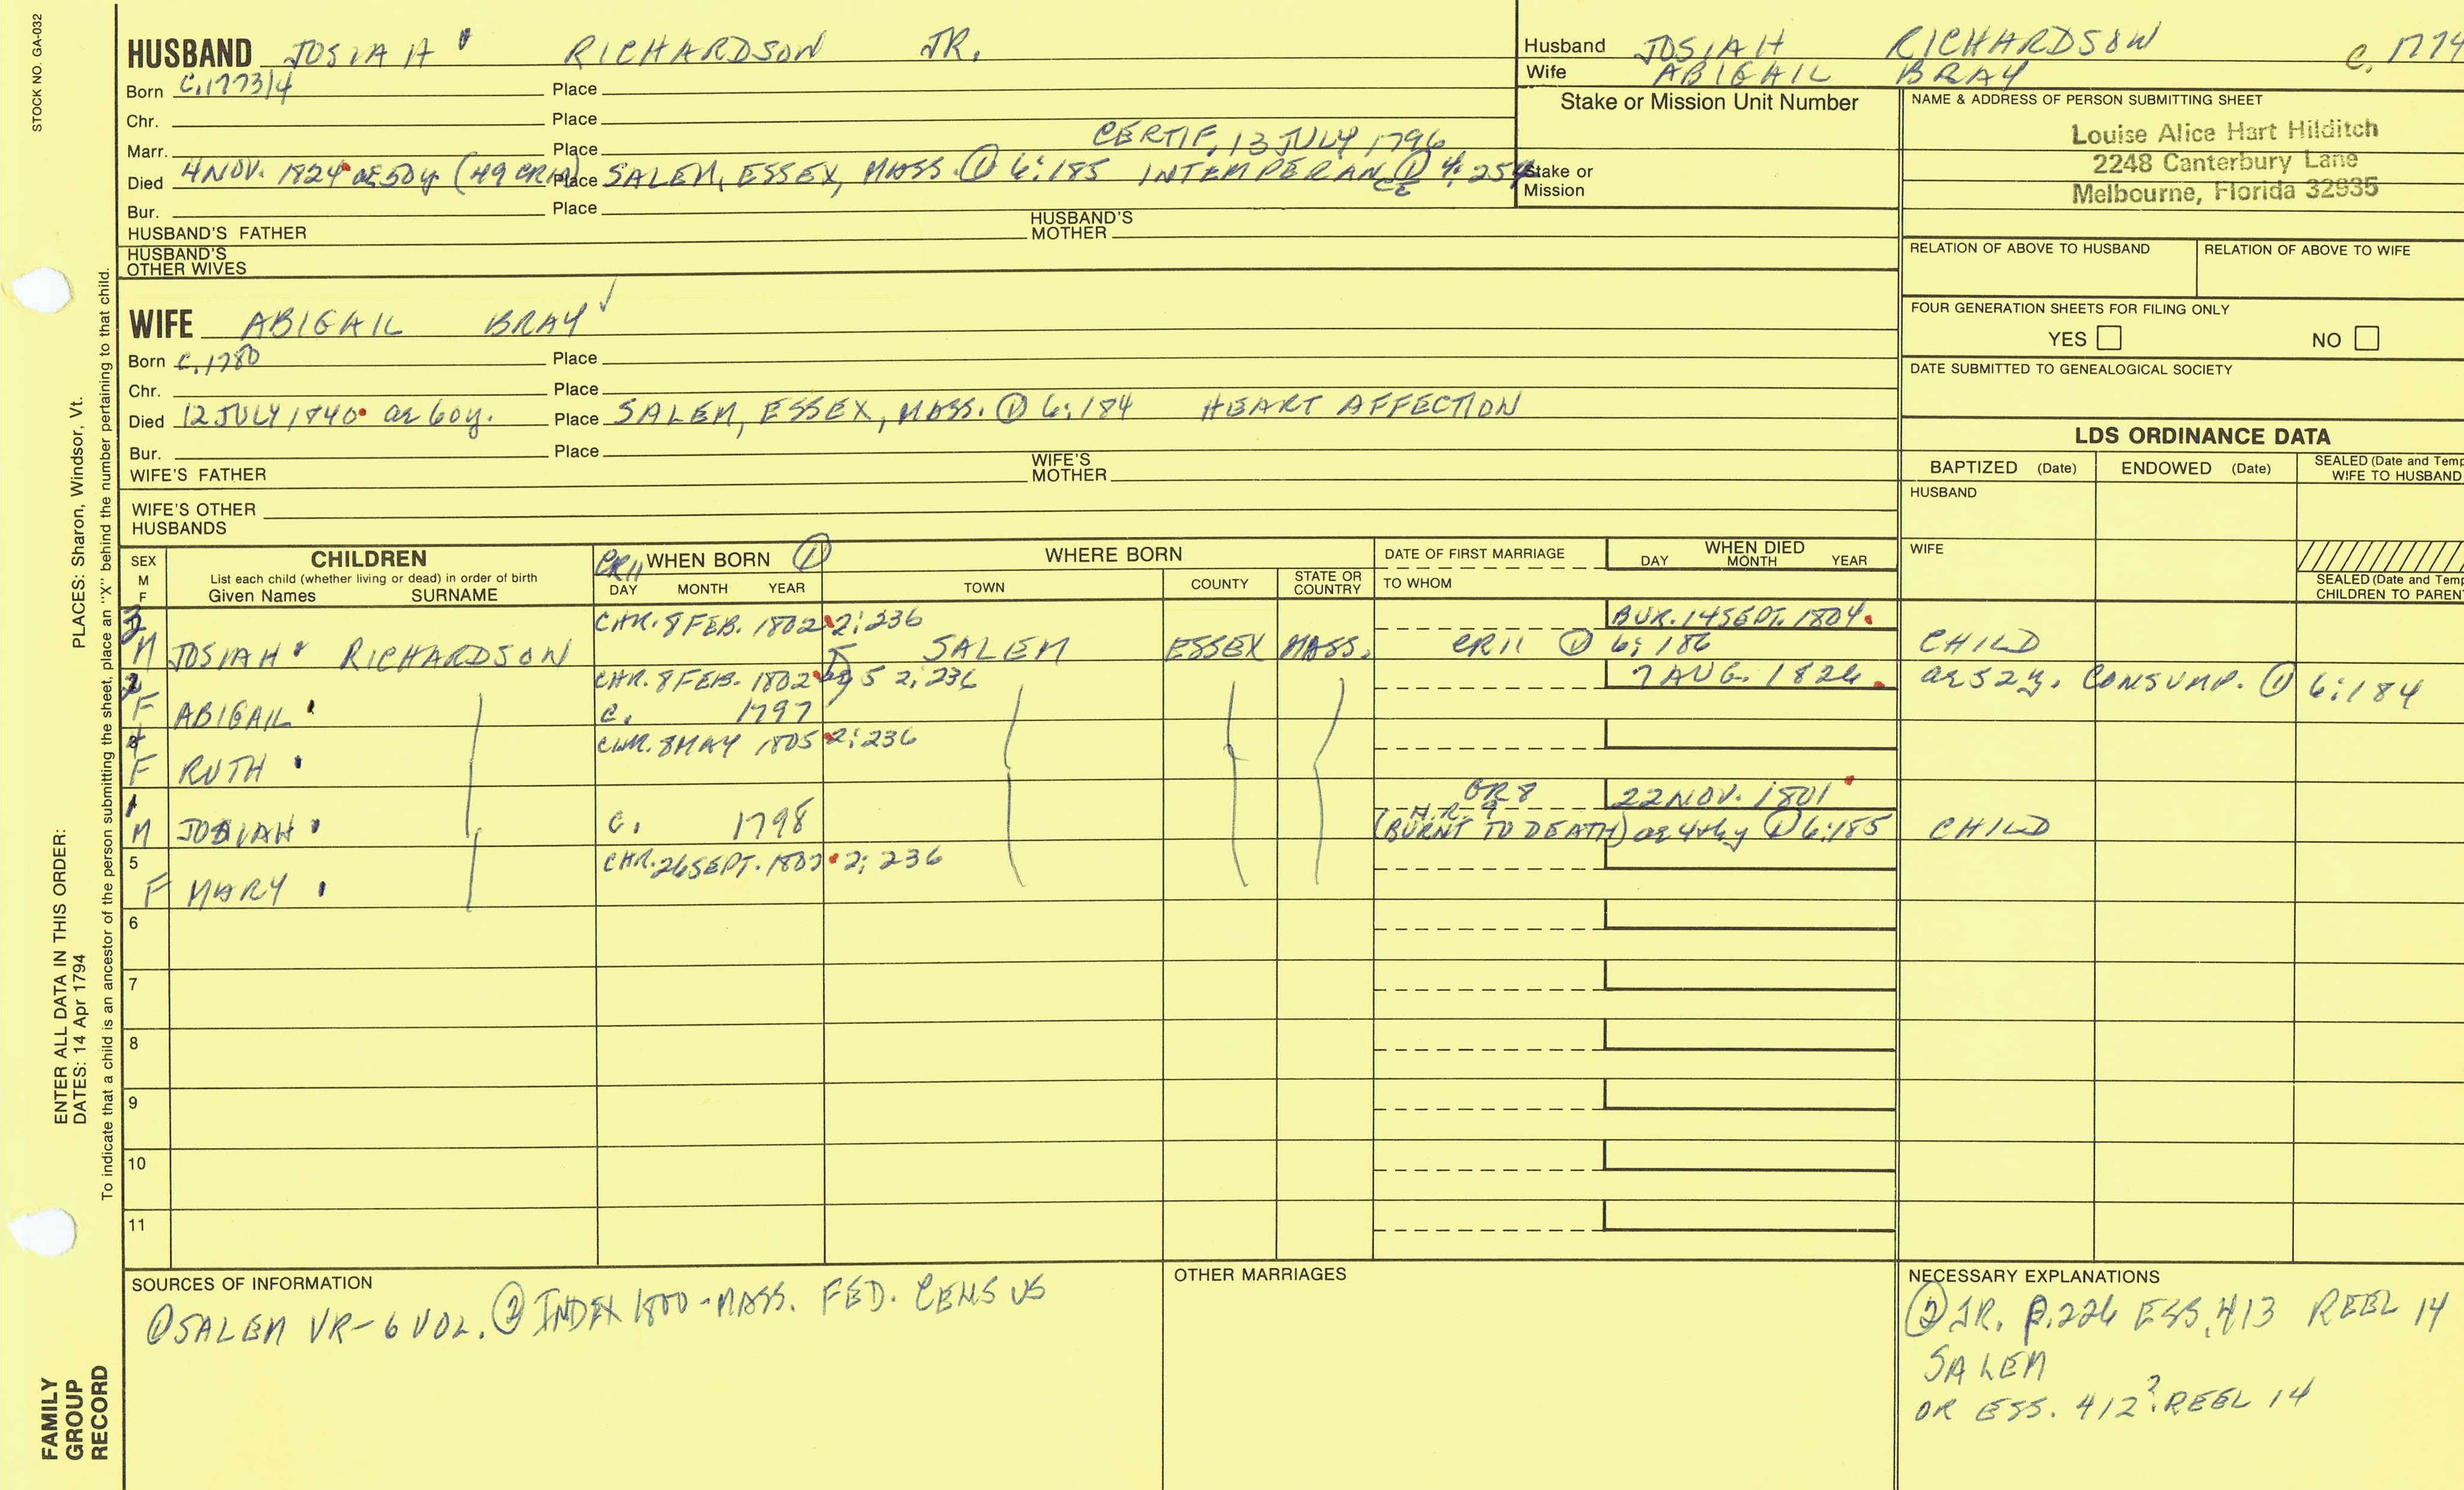 STOCK NO. GA-032
HUSBAND JOSIAH RICHARDSON JR.
Born C.1773/4 Place
Chr. Place
Marr. Place CERTIF. 13 JULY 1796
Died 4 NOV. 1824 ae 50y (49 CR11) Place SALEM, ESSEX, MASS. ① 6:185 INTEMPERANCE ① 4:254
Bur. Place
HUSBAND'S FATHER HUSBAND'S MOTHER
HUSBAND'S OTHER WIVES
Husband JOSIAH RICHARDSON C. 1774
Wife ABIGAIL BRAY
Stake or Mission Unit Number
Stake or Mission
NAME & ADDRESS OF PERSON SUBMITTING SHEET
Louise Alice Hart Hilditch
2248 Canterbury Lane
Melbourne, Florida 32935
RELATION OF ABOVE TO HUSBAND RELATION OF ABOVE TO WIFE
FOUR GENERATION SHEETS FOR FILING ONLY
YES NO
DATE SUBMITTED TO GENEALOGICAL SOCIETY
WIFE ABIGAIL BRAY ✓
Born C.1780 Place
Chr. Place
Died 12 JULY 1840 ae 60y. Place SALEM, ESSEX, MASS. ① 6:184 HEART AFFECTION
Bur. Place
WIFE'S FATHER WIFE'S MOTHER
WIFE'S OTHER HUSBANDS
LDS ORDINANCE DATA
BAPTIZED (Date) ENDOWED (Date) SEALED (Date and Temp
WIFE TO HUSBAND
HUSBAND
WIFE
SEALED (Date and Temp
CHILDREN TO PARENT
SEX M F
CHILDREN
List each child (whether living or dead) in order of birth
Given Names SURNAME
CR11 WHEN BORN ①
DAY MONTH YEAR
WHERE BORN
TOWN COUNTY STATE OR COUNTRY
DATE OF FIRST MARRIAGE
TO WHOM
WHEN DIED
DAY MONTH YEAR
3 CHR. 8 FEB. 1802 2:236 BUR. 14 SEPT. 1804
M JOSIAH RICHARDSON SALEM ESSEX MASS. CR11 ① 6:186 CHILD
2 CHR. 8 FEB. 1802 ag 5 2:236 7 AUG. 1826 ae 52y. CONSUMP. ① 6:184
F ABIGAIL C. 1797
4 CHR. 8 MAY 1805 2:236
F RUTH
1 GR8 22 NOV. 1801
M JOSIAH C. 1798 N.R. 9 (BURNT TO DEATH) ae 4thy ① 6:185 CHILD
5 CHR. 26 SEPT. 1802 2:236
F MARY
6
7
8
9
10
11
SOURCES OF INFORMATION
① SALEM VR-6 VOL. ② INDEX 1800-MASS. FED. CENSUS
OTHER MARRIAGES
NECESSARY EXPLANATIONS
② JR. P.226 ESS. 413 REEL 14
SALEM
OR ESS. 412? REEL 14
PLACES: Sharon, Windsor, Vt.
ENTER ALL DATA IN THIS ORDER:
DATES: 14 Apr 1794
To indicate that a child is an ancestor of the person submitting the sheet, place an "X" behind the number pertaining to that child.
FAMILY
GROUP
RECORD